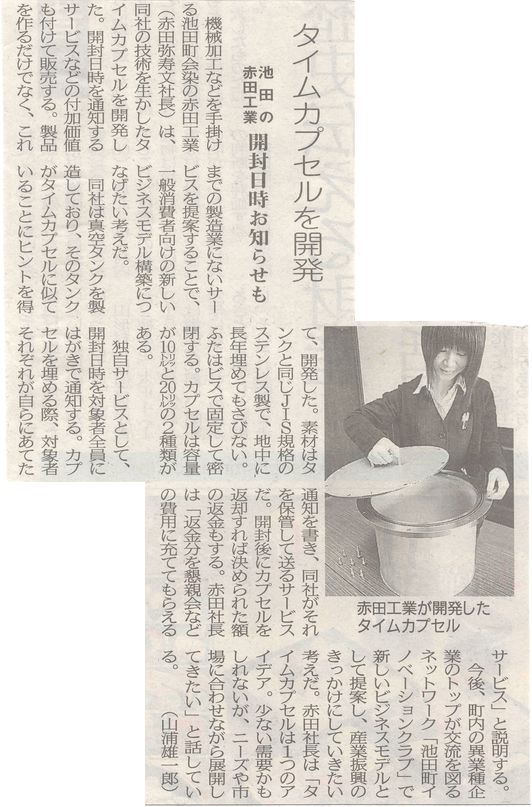 タイムカプセルを開発
池田の
赤田工業
開封日時お知らせも
機械加工などを手掛け
る池田町会染の赤田工業
（赤田弥寿文社長）は、
同社の技術を生かしたタ
イムカプセルを開発し
た。開封日時を通知する
サービスなどの付加価値
も付けて販売する。製品
を作るだけでなく、これ
までの製造業にないサー
ビスを提案することで、
一般消費者向けの新しい
ビジネスモデル構築につ
なげたい考えだ。
同社は真空タンクを製
造しており、そのタンク
がタイムカプセルに似て
いることにヒントを得
て、開発した。素材はタ
ンクと同じＪＩＳ規格の
ステンレス製で、地中に
長年埋めてもさびない。
ふたはビスで固定して密
閉する。カプセルは容量
が10㍑と20㍑の２種類が
ある。
独自サービスとして、
開封日時を対象者全員に
はがきで通知する。カプ
セルを埋める際、対象者
それぞれが自らにあてた
通知を書き、同社がそれ
を保管して送るサービス
だ。開封後にカプセルを
返却すれば決められた額
の返金もする。赤田社長
は「返金分を懇親会など
の費用に充ててもらえる
サービス」と説明する。
今後、町内の異業種企
業のトップが交流を図る
ネットワーク「池田町イ
ノベーションクラブ」で
新しいビジネスモデルと
して提案し、産業振興の
きっかけにしていきたい
考えだ。赤田社長は「タ
イムカプセルは１つのア
イデア。少ない需要かも
しれないが、ニーズや市
場に合わせながら展開し
てきたい」と話してい
る。（山浦雄一郎）
赤田工業が開発した
タイムカプセル